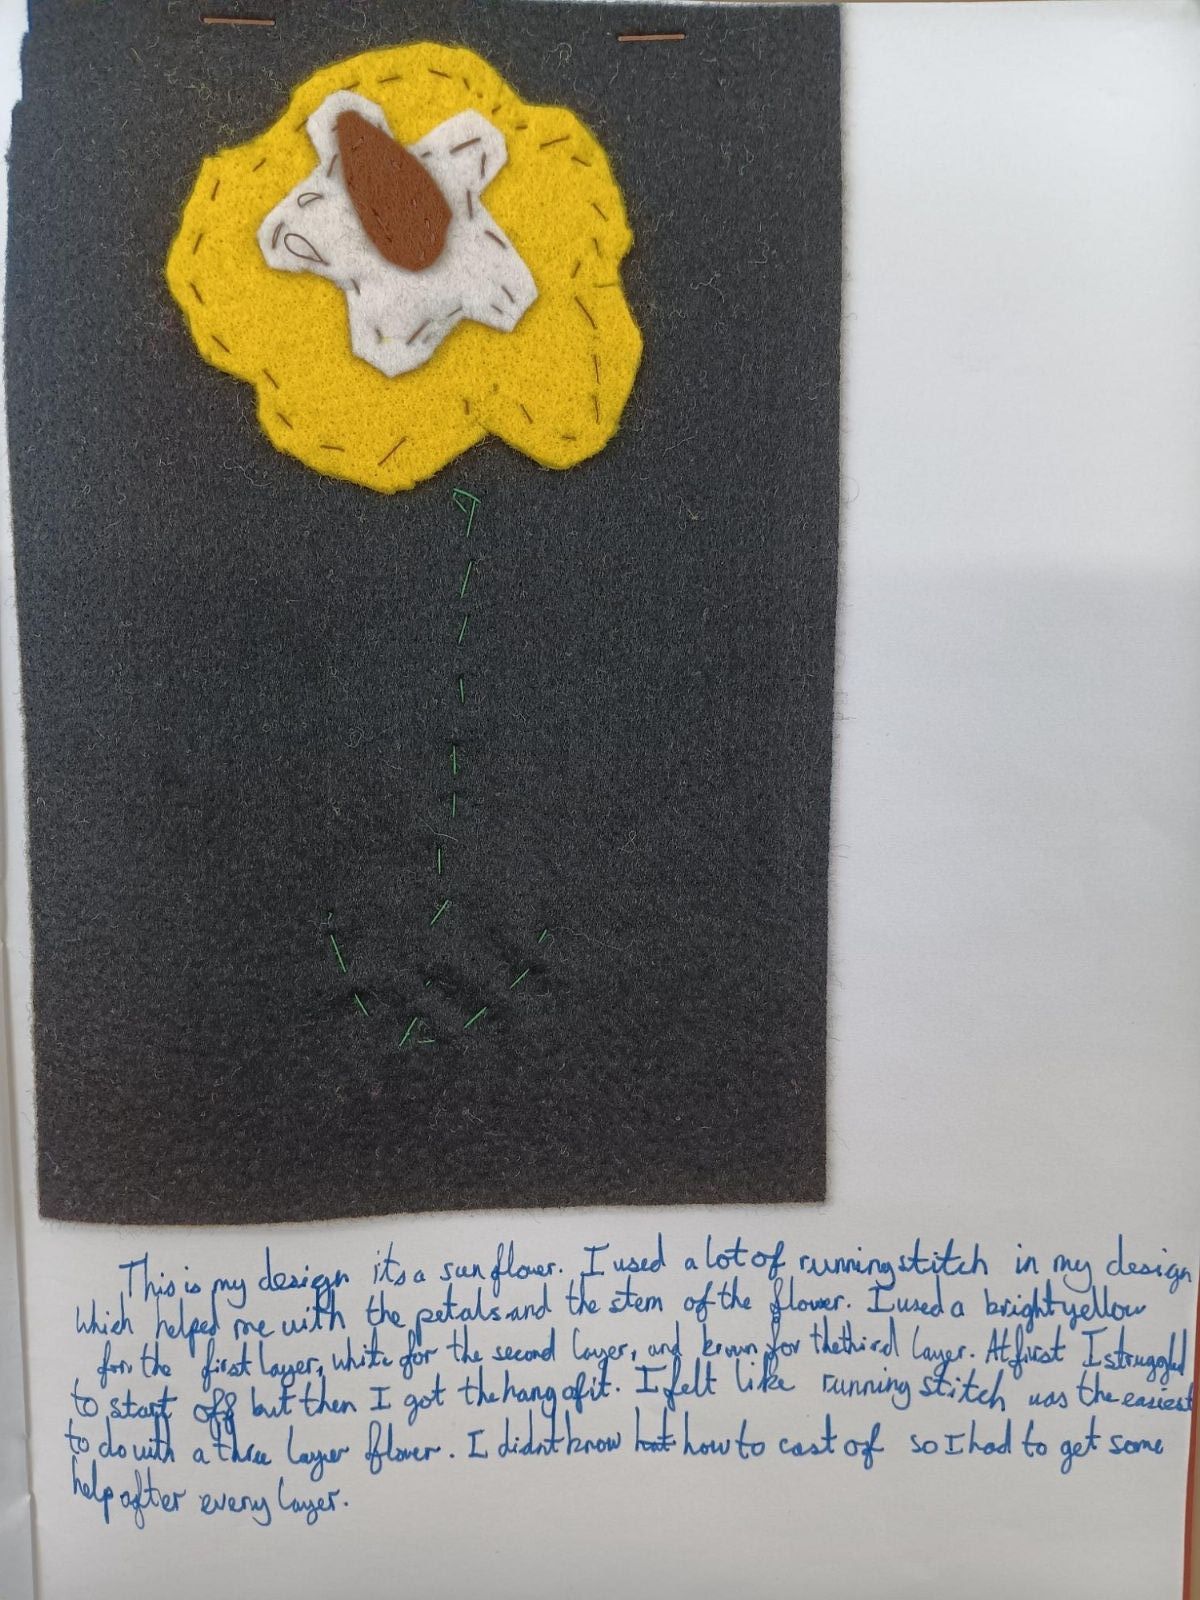 This is my design its a sunflower. I used a lot of running stitch in my design
which helped me with the petals and the stem of the flower. I used a bright yellow
for the first layer, white for the second layer, and brown for the third layer. At first I struggled
to start off but then I got the hang of it. I felt like running stitch was the easiest
to do with a three layer flower. I didnt know how to cast of so I had to get some
help after every layer.